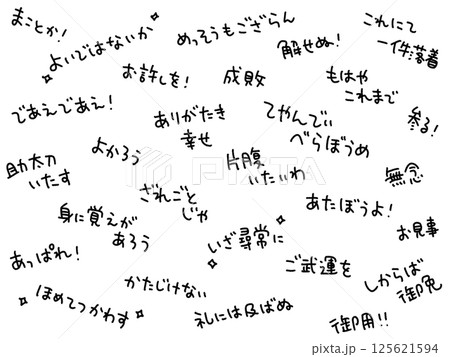 まことか!
よいではないか
めっそうもござらん
これにて
一件落着
解せぬ!
お許しを!
成敗
もはや
これまで
であえであえ!
ありがたき
幸せ
てやんでぃ
べらぼうめ
参る!
よかろう
助太刀
いたす
片腹
いたいわ
無念
ざれごと
じゃ
あたぼうよ!
身に覚えが
あろう
お見事
いざ尋常に
あっぱれ!
ご武運を
かたじけない
しからば
御免
ほめてつかわす
礼には及ばぬ
御用!!
PIXTA
pixta.jp - 125621594